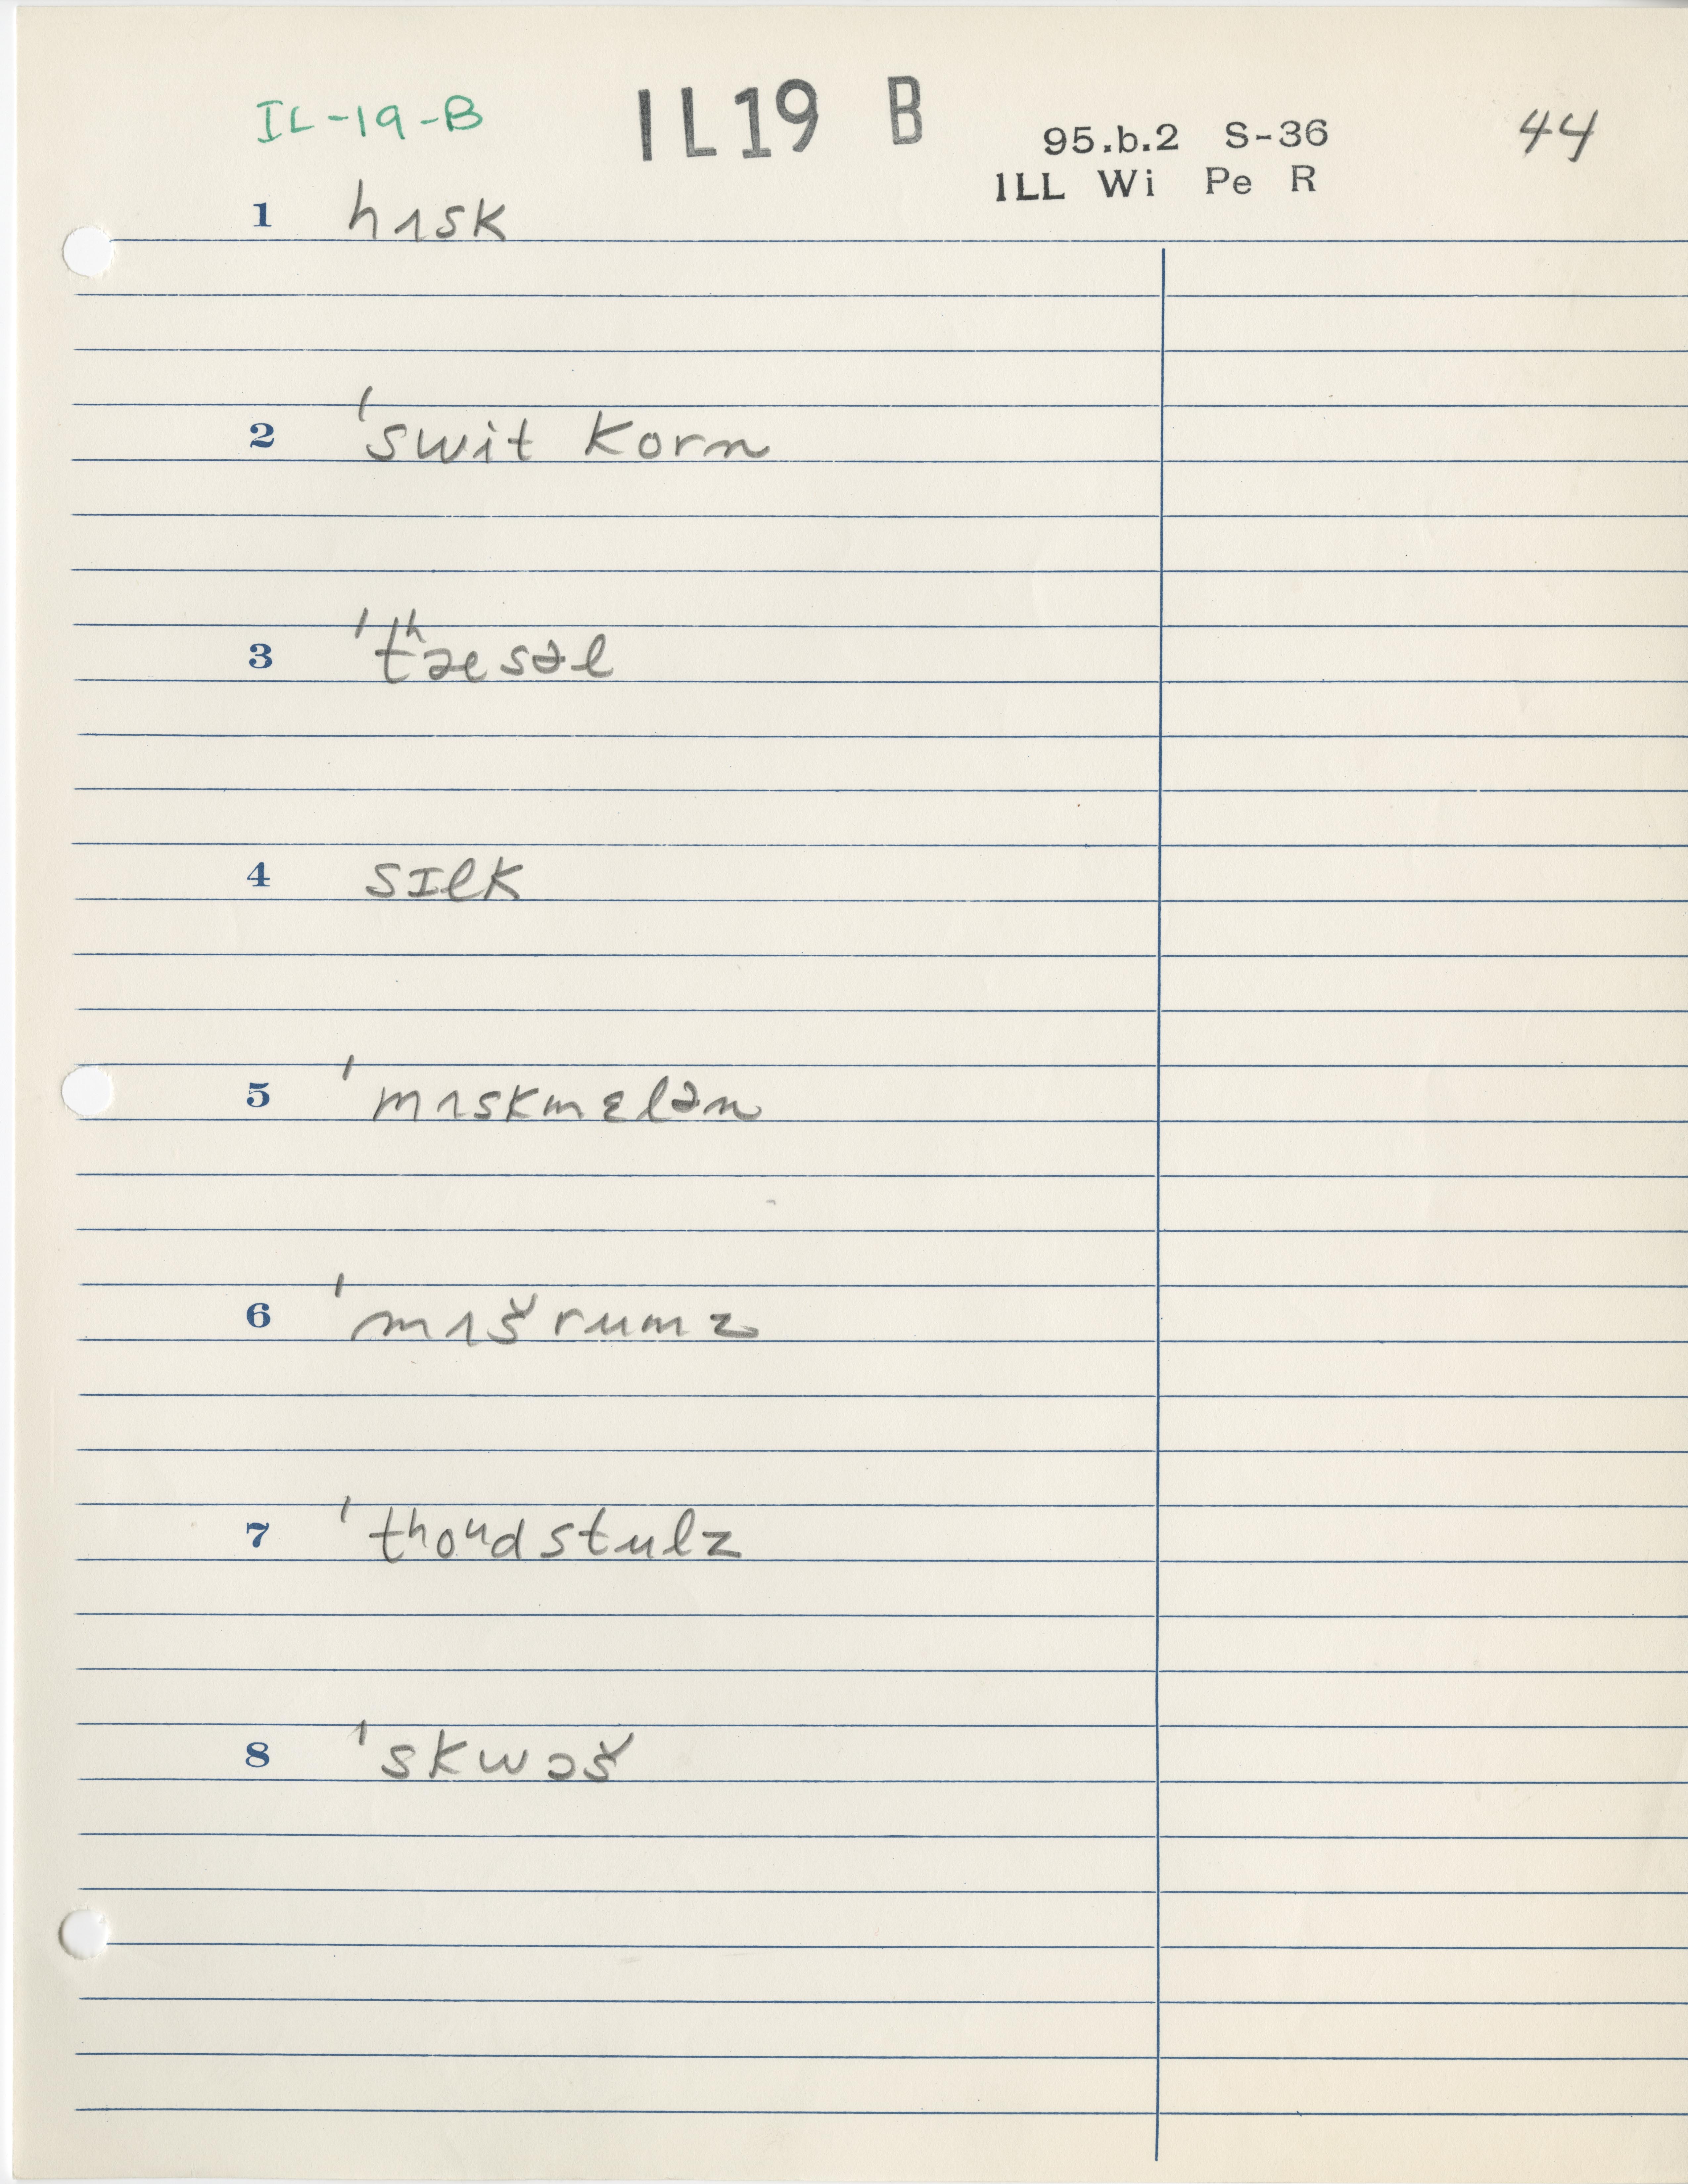 IL-19-B IL19 B 95.b.2 S-36 44
ILL Wi Pe R
1 hʌsk
2 ˈswit korn
3 ˈtʰæsəl
4 sɪlk
5 ˈmʌskmɛlən
6 ˈmʌšrumz
7 ˈtʰoᵘdstulz
8 ˈskwɔš